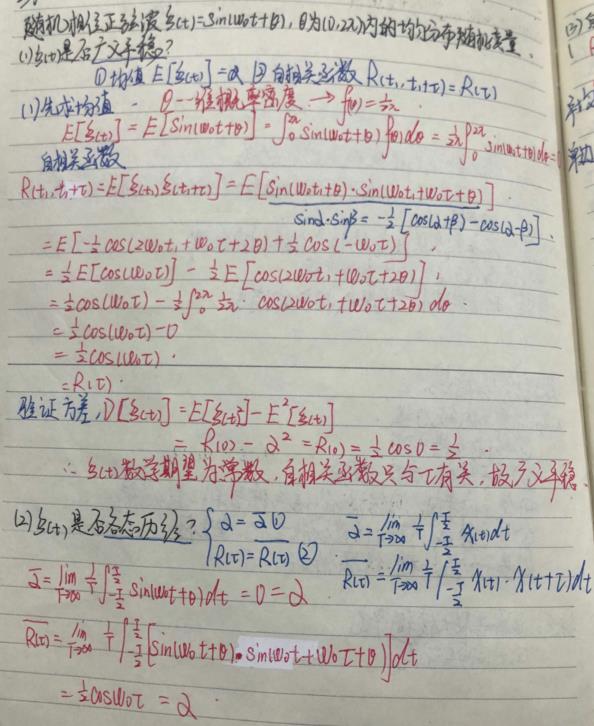 随机相位正弦波ξ(t)=sin(ω₀t+θ), θ为(0,2π)内的均匀分布随机变量.
(1)ξ(t)是否广义平稳?
①均值 E[ξ(t)]=α ②自相关函数 R(t₁,t₁+τ)=R(τ)
(1)先求均值. θ一维概率密度 → f(θ)=1/2π
E[ξ(t)]=E[sin(ω₀t+θ)]=∫₀^2π sin(ω₀t+θ)f(θ)dθ=1/2π∫₀^2π sin(ω₀t+θ)dθ=0
自相关函数
R(t₁,t₁+τ)=E[ξ(t₁)ξ(t₁+τ)]=E[sin(ω₀t₁+θ)·sin(ω₀t₁+ω₀τ+θ)].
sinα·sinβ=-1/2[cos(α+β)-cos(α-β)].
=E[-1/2cos(2ω₀t₁+ω₀τ+2θ)+1/2cos(-ω₀τ)].
=1/2E[cos(ω₀τ)]-1/2E[cos(2ω₀t₁+ω₀τ+2θ)].
=1/2cos(ω₀τ)-1/2∫₀^2π 1/2π·cos(2ω₀t₁+ω₀τ+2θ)dθ.
=1/2cos(ω₀τ)-0
=1/2cos(ω₀τ).
=R(τ).
验证方差, D[ξ(t)]=E[ξ(t)²]-E²[ξ(t)]
=R(0)-α²=R(0)=1/2cos0=1/2.
∴ξ(t)数学期望为常数, 自相关函数只与τ有关, 故广义平稳.
(2)ξ(t)是否各态历经? { α=ᾱ① R(τ)=R̄(τ)②
ᾱ=lim T→∞ 1/T∫_-T/2^T/2 x(t)dt
R̄(τ)=lim T→∞ 1/T∫_-T/2^T/2 x(t)·x(t+τ)dt
ᾱ=lim T→∞ 1/T∫_-T/2^T/2 sin(ω₀t+θ)dt=0=α
R̄(τ)=lim T→∞ 1/T∫_-T/2^T/2[sin(ω₀t+θ)·sin(ω₀t+ω₀τ+θ)]dt
=1/2cosω₀τ=α.